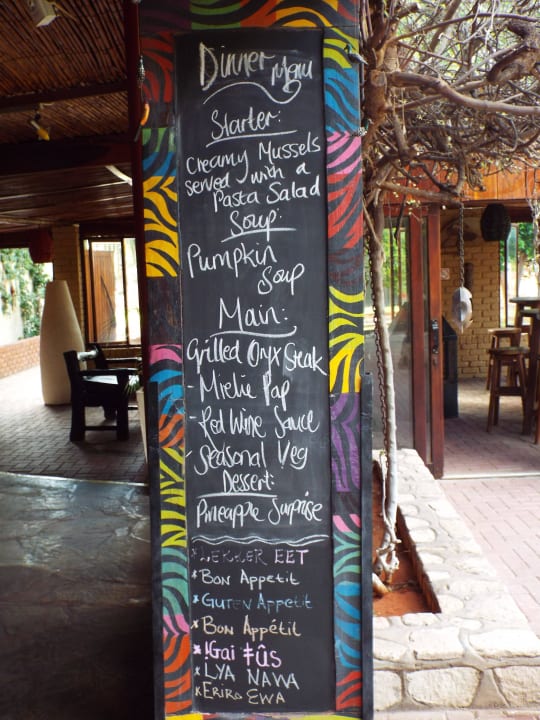 Dinner Menu
Starter:
Creamy Mussels
served with a
Pasta Salad
Soup:
Pumpkin
Soup
Main:
Grilled Oryx Steak
- Mielie Pap
- Red Wine Sauce
- Seasonal Veg
Dessert:
Pineapple Surprise
* LEKKER EET
* Bon Appetit
* Guten Appetit
* Bon Appétit
* !Gai ǂûs
* LYA NAWA
* Eriro EWA